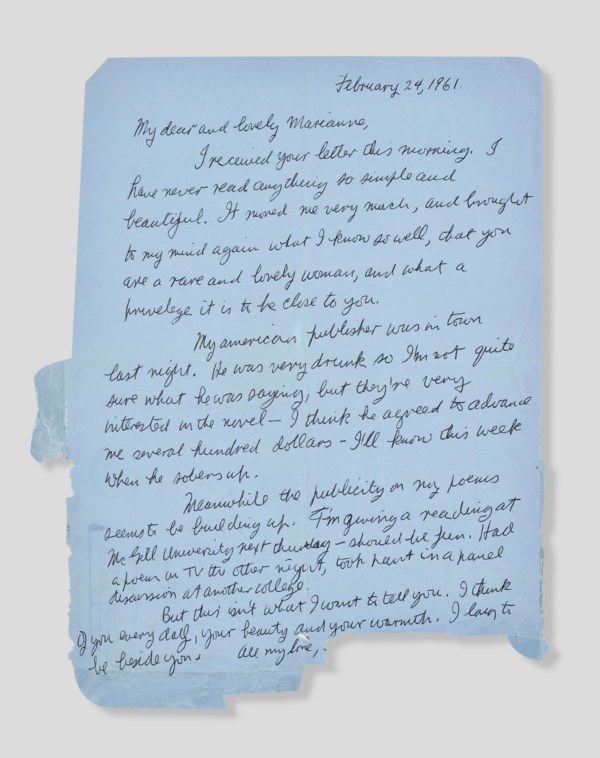 February 24, 1961.
My dear and lovely Marianne,
I received your letter this morning. I
have never read anything so simple and
beautiful. It moved me very much, and brought
to my mind again what I know so well, that you
are a rare and lovely woman, and what a
privelege it is to be close to you.
My american publisher was in town
last night. He was very drunk so I'm not quite
sure what he was saying, but they're very
interested in the novel — I think he agreed to advance
me several hundred dollars - I'll know this week
when he sobers up.
Meanwhile the publicity on my poems
seems to be building up. I'm giving a reading at
McGill University next thursday - should be fun. Had
a poem on TV the other night, took part in a panel
discussion at another college.
But this isn't what I want to tell you. I think
of you every day, your beauty and your warmth. I long to
be beside you. All my love,